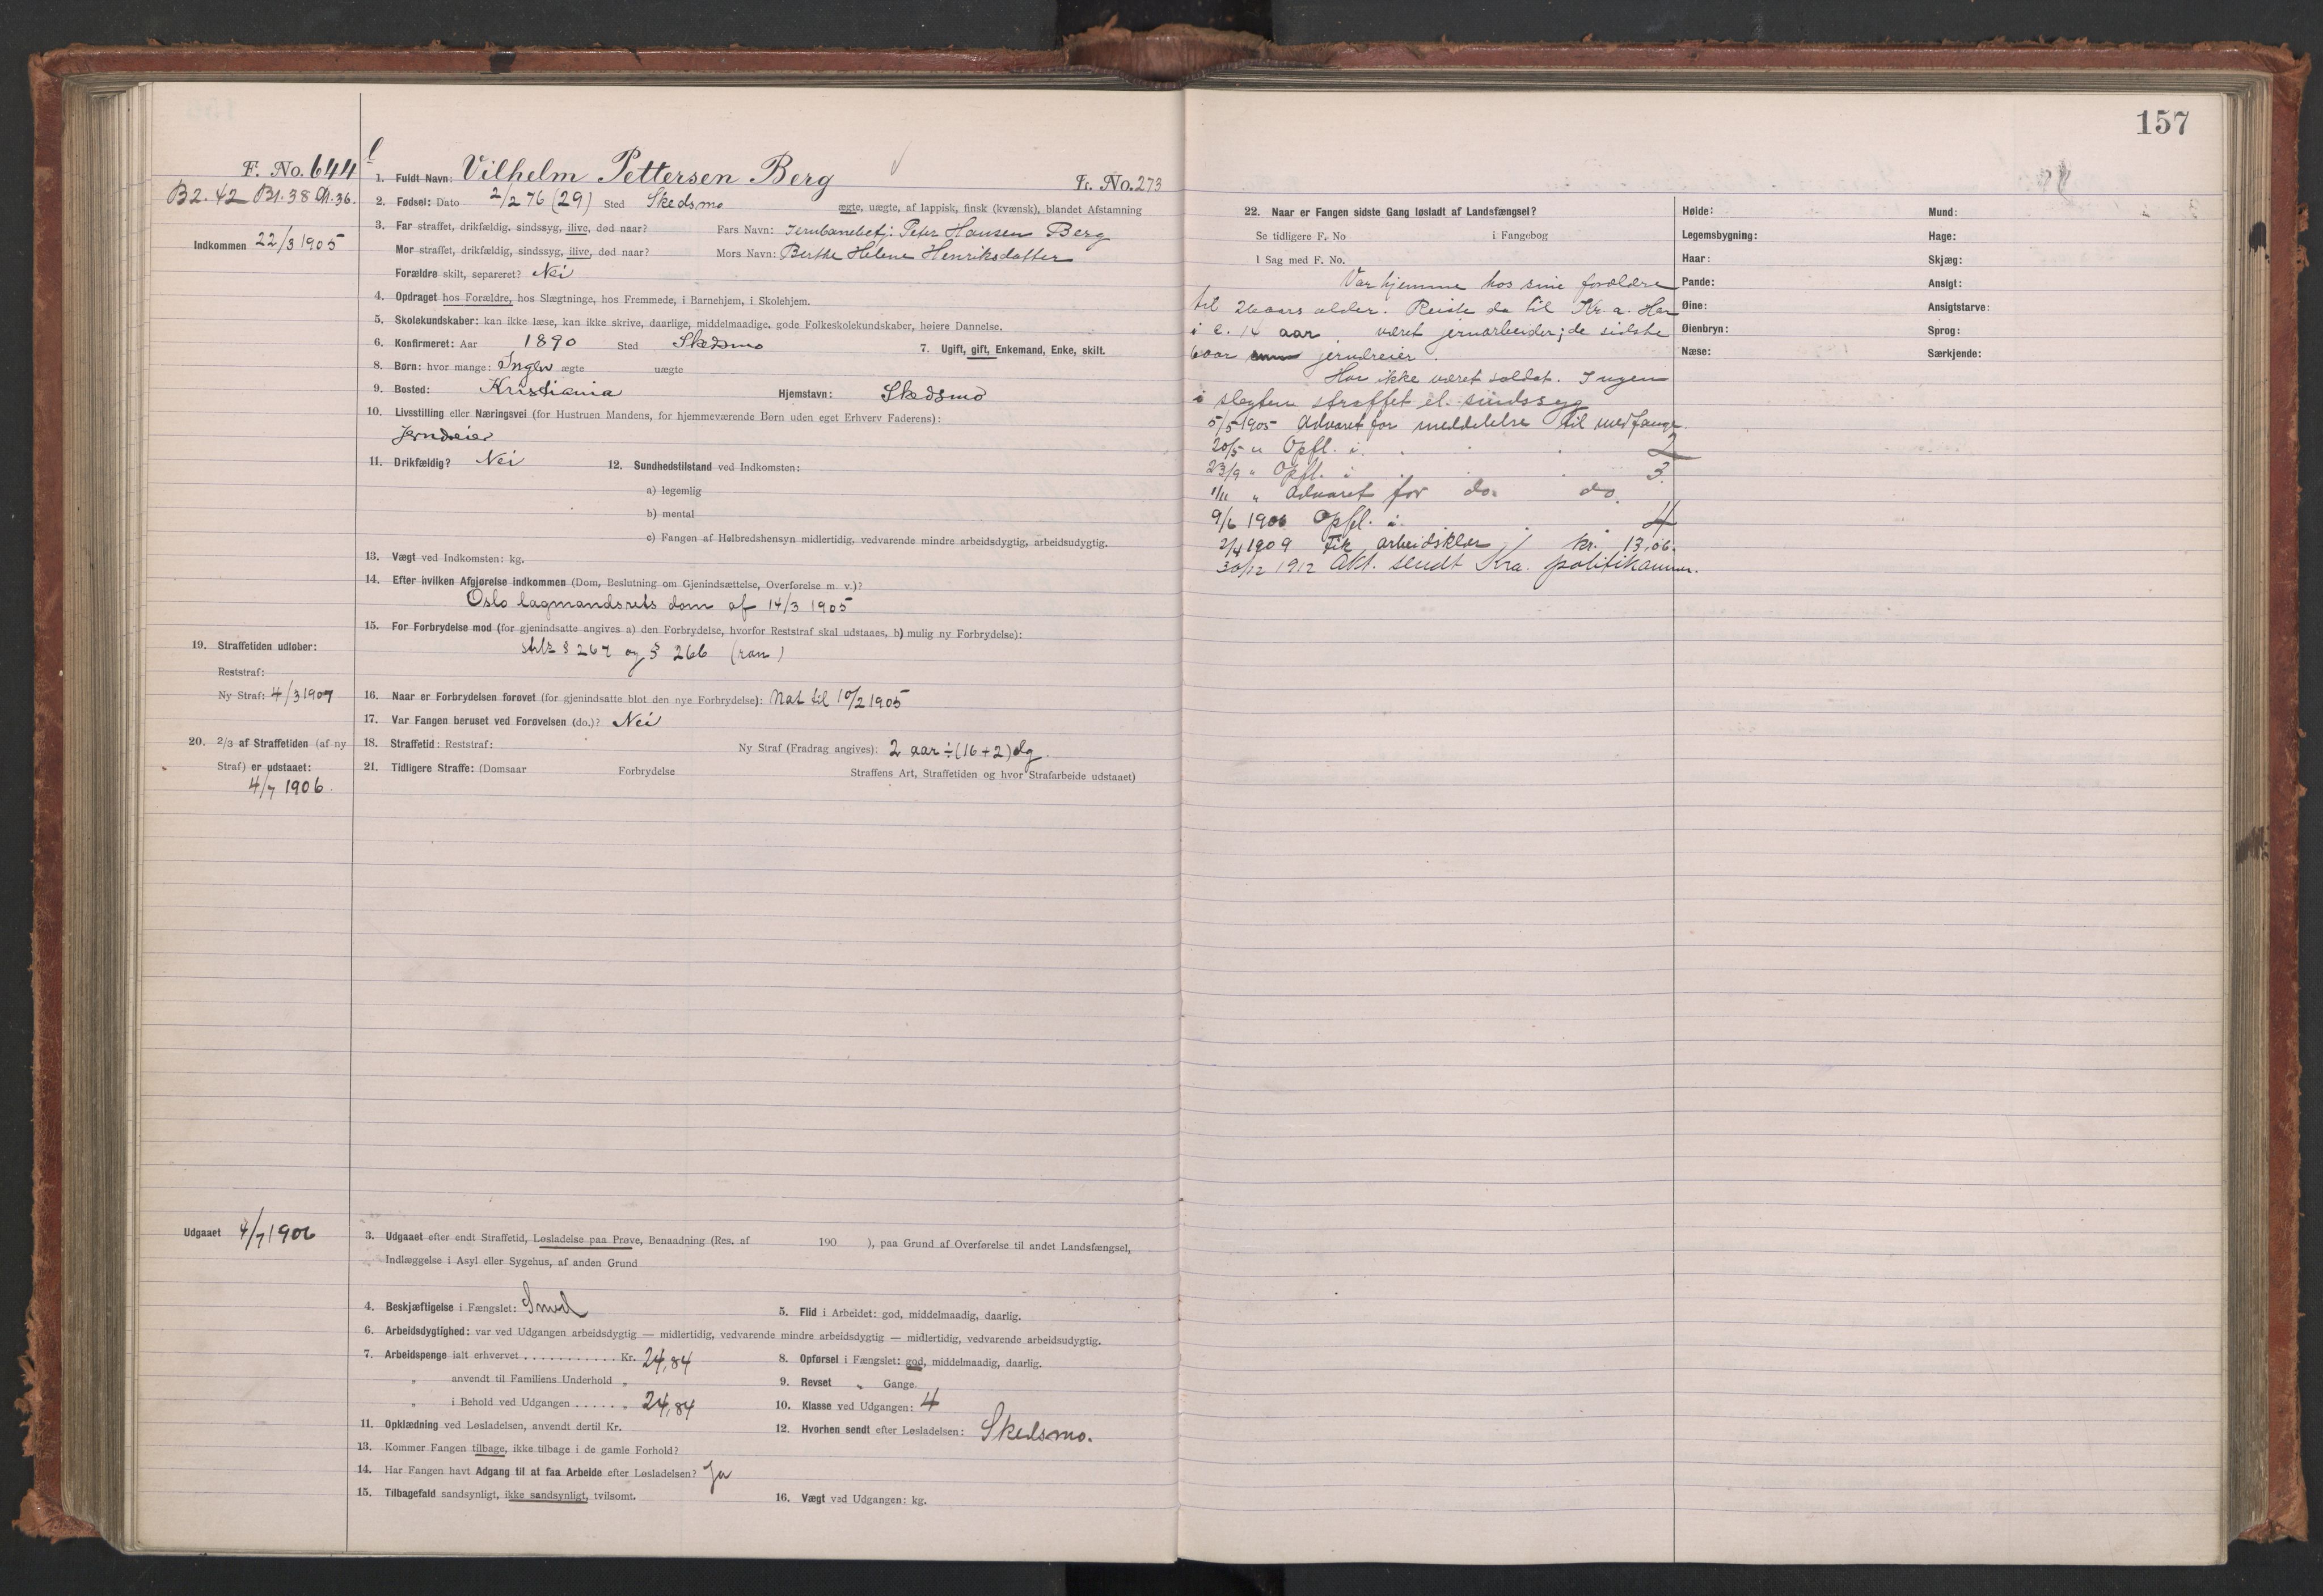 157
F. No. 644
B2. 42 B1. 38 A. 36.
Indkommen 22/3 1905
1. Fuldt Navn: Vilhelm Pettersen Berg Fr. No. 273
2. Fødsel: Dato 2/2 76 (29) Sted Skedsmo ægte, uægte, af lappisk, finsk (kvænsk), blandet Afstamning
3. Far straffet, drikfældig, sindssyg, ilive, død naar? Fars Navn: Jernbanebetj: Peter Hansen Berg
Mor straffet, drikfældig, sindssyg, ilive, død naar? Mors Navn: Berthe Helene Henriksdatter
Forældre skilt, separeret? Nei
4. Opdraget hos Forældre, hos Slægtninge, hos Fremmede, i Barnehjem, i Skolehjem.
5. Skolekundskaber: kan ikke læse, kan ikke skrive, daarlige, middelmaadige, gode Folkeskolekundskaber, høiere Dannelse.
6. Konfirmeret: Aar 1890 Sted Skedsmo 7. Ugift, gift, Enkemand, Enke, skilt.
8. Børn: hvor mange: Ingen ægte uægte
9. Bosted: Kristiania Hjemstavn: Skedsmo
10. Livsstilling eller Næringsvei (for Hustruen Mandens, for hjemmeværende Børn uden eget Erhverv Faderens):
Jerndreier
11. Drikfældig? Nei 12. Sundhedstilstand ved Indkomsten:
a) legemlig
b) mental
c) Fangen af Helbredshensyn midlertidig, vedvarende mindre arbeidsdygtig, arbeidsudygtig.
13. Vægt ved Indkomsten: kg.
14. Efter hvilken Afgjørelse indkommen (Dom, Beslutning om Gjenindsættelse, Overførelse m. v.)?
Oslo lagmandsrets dom af 14/3 1905
15. For Forbrydelse mod (for gjenindsatte angives a) den Forbrydelse, hvorfor Reststraf skal udstaaes, b) mulig ny Forbrydelse):
strlz § 267 og § 266 (ran)
19. Straffetiden udløber:
Reststraf:
Ny Straf: 4/3 1907
16. Naar er Forbrydelsen forøvet (for gjenindsatte blot den nye Forbrydelse): Nat til 10/2 1905
17. Var Fangen beruset ved Forøvelsen (do.)? Nei
20. 2/3 af Straffetiden (af ny
Straf) er udstaaet:
4/7 1906.
18. Straffetid: Reststraf: Ny Straf (Fradrag angives): 2 aar ÷ (16 + 2) dg.
21. Tidligere Straffe: (Domsaar Forbrydelse Straffens Art, Straffetiden og hvor Strafarbeide udstaaet)
Udgaaet 4/7 1906
3. Udgaaet efter endt Straffetid, Løsladelse paa Prøve, Benaadning (Res. af 190 ), paa Grund af Overførelse til andet Landsfængsel,
Indlæggelse i Asyl eller Sygehus, af anden Grund
4. Beskjæftigelse i Fængslet: Smed 5. Flid i Arbeidet: god, middelmaadig, daarlig.
6. Arbeidsdygtighed: var ved Udgangen arbeidsdygtig — midlertidig, vedvarende mindre arbeidsdygtig — midlertidig, vedvarende arbeidsudygtig.
7. Arbeidspenge ialt erhvervet . . . . . . . . . . . . Kr. 24,84 8. Opførsel i Fængslet: god, middelmaadig, daarlig.
„ anvendt til Familiens Underhold „ 9. Revset „ Gange.
„ i Behold ved Udgangen . . . . . . „ 24,84 10. Klasse ved Udgangen: 4
11. Opklædning ved Løsladelsen, anvendt dertil Kr. 12. Hvorhen sendt efter Løsladelsen: Skedsmo.
13. Kommer Fangen tilbage, ikke tilbage i de gamle Forhold?
14. Har Fangen havt Adgang til at faa Arbeide efter Løsladelsen? Ja
15. Tilbagefald sandsynligt, ikke sandsynligt, tvilsomt. 16. Vægt ved Udgangen: kg.
22. Naar er Fangen sidste Gang løsladt af Landsfængsel?
Se tidligere F. No i Fangebog
I Sag med F. No.
Var hjemme hos sine forældre
til 26 aars alder. Reiste da til Kr.a. Har
i c. 14 aar været jernarbeider; de sidste
6 aar jerndreier.
Har ikke været soldat. Ingen
i slegten straffet el. sindssyg
5/5 1905 Advaret for meddelelse til medfange.
20/5 " Opfl. i. 2
23/9 " Opfl. i 3.
1/11 " Advaret for do. do.
9/6 1906 Opfl. i. 4
2/4 1909 Fik arbeidsklær / kr. 13,06.
30/12 1912 Akt. sendt Kra. politikammer.
Høide: Mund:
Legemsbygning: Hage:
Haar: Skjæg:
Pande: Ansigt:
Øine: Ansigtstarve:
Øienbryn: Sprog:
Næse: Særkjende: